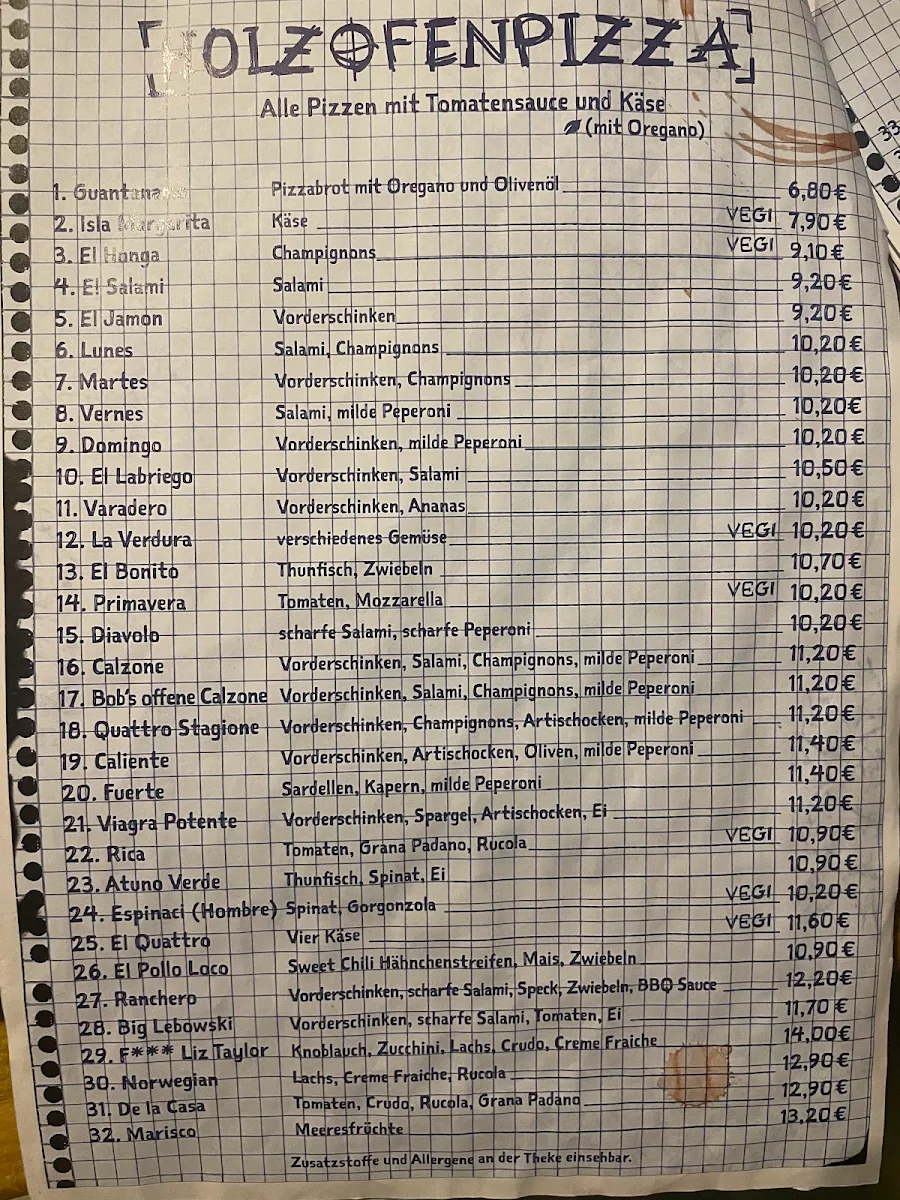 HOLZOFENPIZZA
Alle Pizzen mit Tomatensauce und Käse
(mit Oregano)
1. Pizzabrot mit Oregano und Olivenöl 6,80€
2. Isla Margarita Käse VEGI 7,90€
3. El Honga Champignons VEGI 9,10€
4. El Salami Salami 9,20€
5. El Jamon Vorderschinken 9,20€
6. Lunes Salami, Champignons 10,20€
7. Martes Vorderschinken, Champignons 10,20€
8. Vernes Salami, milde Peperoni 10,20€
9. Domingo Vorderschinken, milde Peperoni 10,20€
10. El Labriego Vorderschinken, Salami 10,50€
11. Varadero Vorderschinken, Ananas 10,20€
12. La Verdura verschiedenes Gemüse VEGI 10,20€
13. El Bonito Thunfisch, Zwiebeln 10,70€
14. Primavera Tomaten, Mozzarella VEGI 10,20€
15. Diavolo scharfe Salami, scharfe Peperoni 10,20€
16. Calzone Vorderschinken, Salami, Champignons, milde Peperoni 11,20€
17. Bob's offene Calzone Vorderschinken, Salami, Champignons, milde Peperoni 11,20€
18. Quattro Stagione Vorderschinken, Champignons, Artischocken, milde Peperoni 11,20€
19. Caliente Vorderschinken, Artischocken, Oliven, milde Peperoni 11,40€
20. Fuerte Sardellen, Kapern, milde Peperoni 11,40€
21. Viagra Potente Vorderschinken, Spargel, Artischocken, Ei 11,20€
22. Rica Tomaten, Grana Padano, Rucola VEGI 10,90€
23. Atuno Verde Thunfisch, Spinat, Ei 10,90€
24. Espinaci (Hombre) Spinat, Gorgonzola VEGI 10,20€
25. El Quattro Vier Käse VEGI 11,60€
26. El Pollo Loco Sweet Chili Hähnchenstreifen, Mais, Zwiebeln 10,90€
27. Ranchero Vorderschinken, scharfe Salami, Speck, Zwiebeln, BBQ Sauce 12,20€
28. Big Lebowski Vorderschinken, scharfe Salami, Tomaten, Ei 11,70€
29. F*** Liz Taylor Knoblauch, Zucchini, Lachs, Crudo, Creme Fraiche 14,00€
30. Norwegian Lachs, Creme Fraiche, Rucola 12,90€
31. De la Casa Tomaten, Crudo, Rucola, Grana Padano 12,90€
32. Marisco Meeresfrüchte 13,20€
Zusatzstoffe und Allergene an der Theke einsehbar.
33